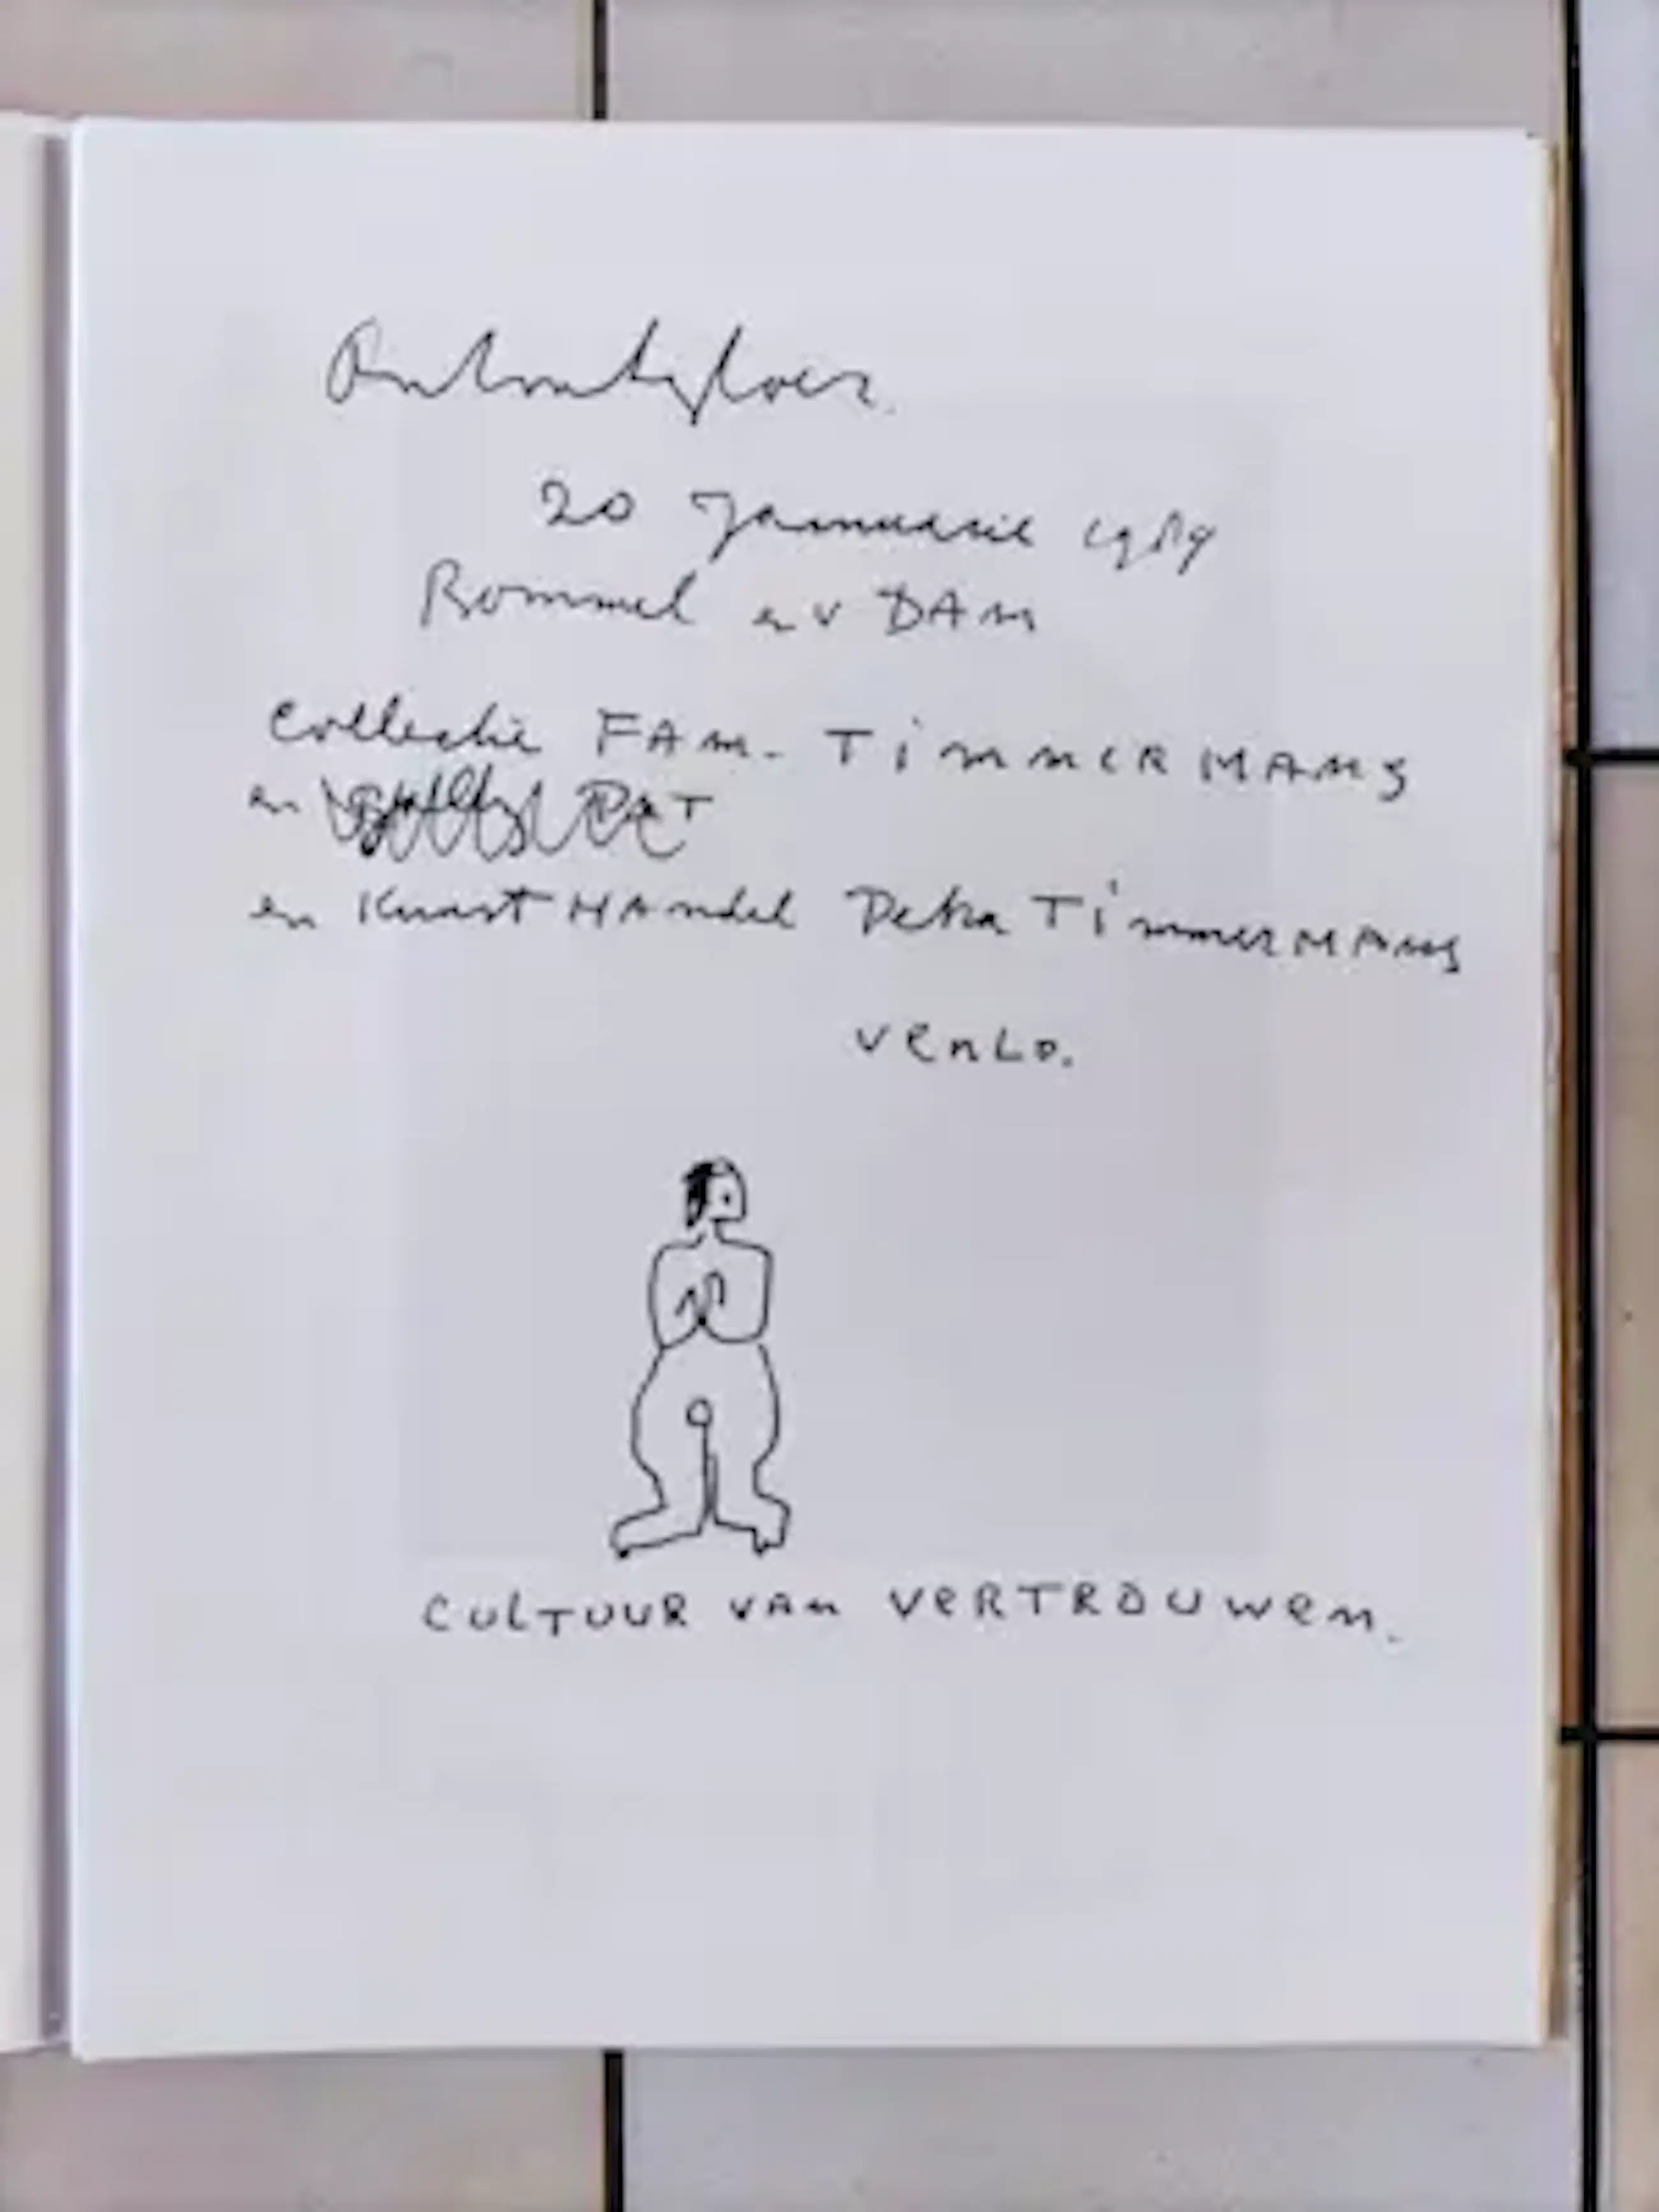 20 Januarie 1989
Bommel en v DAm
Collectie FAM. TimmeRMANS
en
en KunstHAndel Petra TimmerMANS
VenLo.
CULTUUR VAn VeRTROUWen.